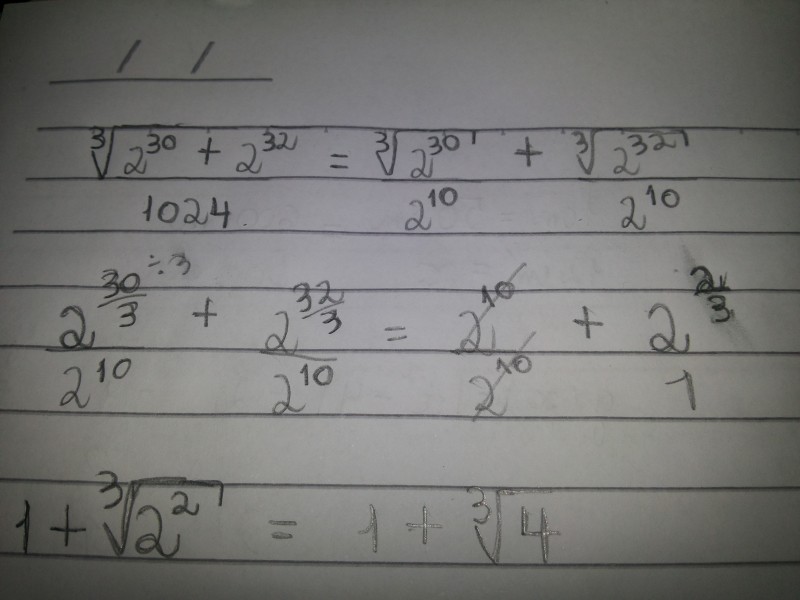 / /
∛(2³⁰ + 2³²) / 1024 = ∛(2³⁰) / 2¹⁰ + ∛(2³²) / 2¹⁰
2^(30/3) ÷3 / 2¹⁰ + 2^(32/3) / 2¹⁰ = 2¹⁰ / 2¹⁰ + 2^(2/3) / 1
1 + ∛(2²) = 1 + ∛4